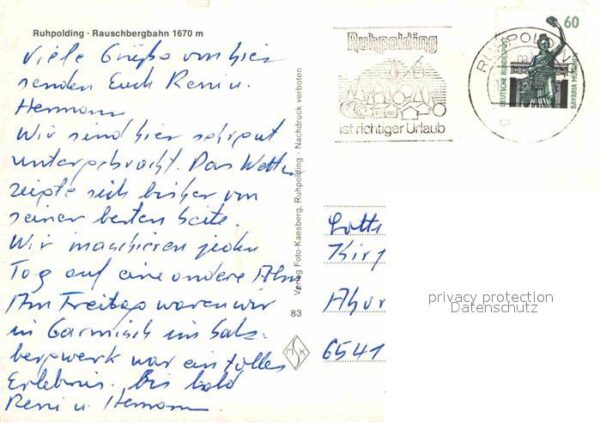 Ruhpolding · Rauschbergbahn 1670 m
Viele Grüße von hier
senden Euch Reni u.
Hermann
Wir sind hier sehr gut
untergebracht. Das Wetter
zeigte sich bisher von
seiner besten Seite.
Wir maschieren jeden
Tag auf eine andere Alm,
Am Freitag waren wir
in Garmisch im Salz-
bergwerk war ein tolles
Erlebnis. Bis bald
Reni u. Hermann
Verlag Foto-Kaesberg, Ruhpolding · Nachdruck verboten
83
K
Ruhpolding
ist richtiger Urlaub
RUHPOLDING
60
DEUTSCHE BUNDESPOST
BAVARIA MÜNCHEN
Lotte
Kirz
Ahor
6541
privacy protection
Datenschutz